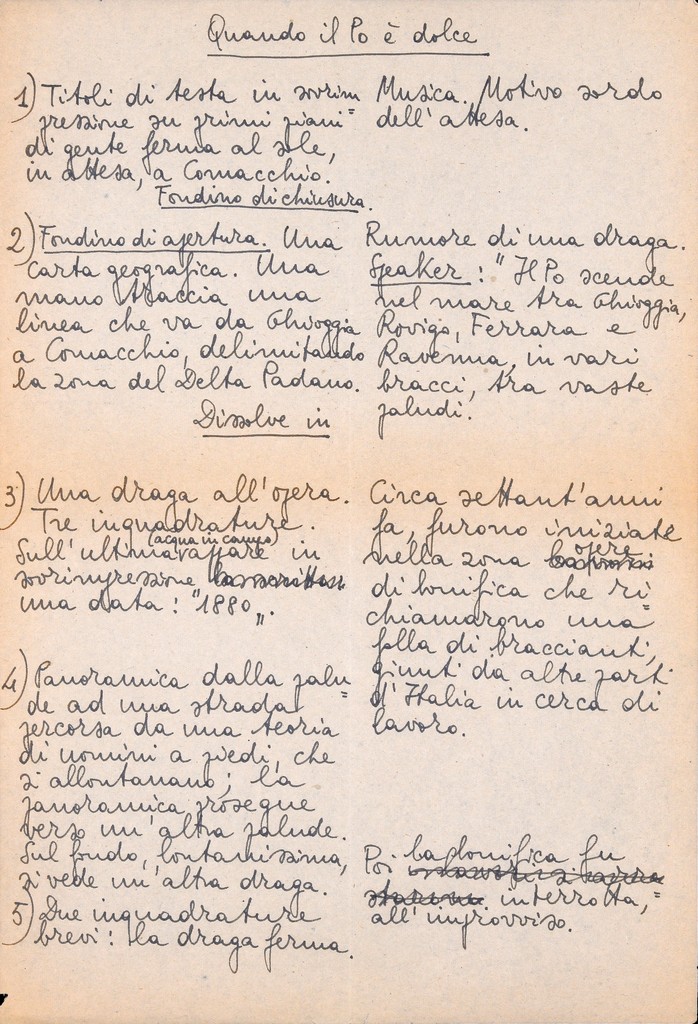 Quando il Po è dolce
1) Titoli di testa in sovrim
pressione su primi piani=
di gente ferma al sole,
in attesa, a Comacchio.
Fondino di chiusura.
Musica. Motivo sordo
dell'attesa.
2) Fondino di apertura. Una
carta geografica. Una
mano traccia una
linea che va da Chioggia
a Comacchio, delimitando
la zona del Delta Padano.
Dissolve in
Rumore di una draga.
Speaker: "Il Po scende
nel mare tra Chioggia,
Rovigo, Ferrara e
Ravenna, in vari
bracci, tra vaste
paludi.
3) Una draga all'opera.
Tre inquadrature.
(acqua in campo)
Sull'ultima appare in
sovrimpressione
una data: "1880".
Circa settant'anni
fa, furono iniziate
nella zona opere
di bonifica che ri=
chiamarono una
folla di braccianti,
giunti da altre parti
d'Italia in cerca di
lavoro.
4) Panoramica dalla palu=
de ad una strada
percorsa da una teoria
di uomini a piedi, che
si allontanano; la
panoramica prosegue
verso un'altra palude.
Sul fondo, lontanissima,
si vede un'altra draga.
5) Due inquadrature
brevi: la draga ferma.
Poi la bonifica fu
interrotta,=
all'improvviso.